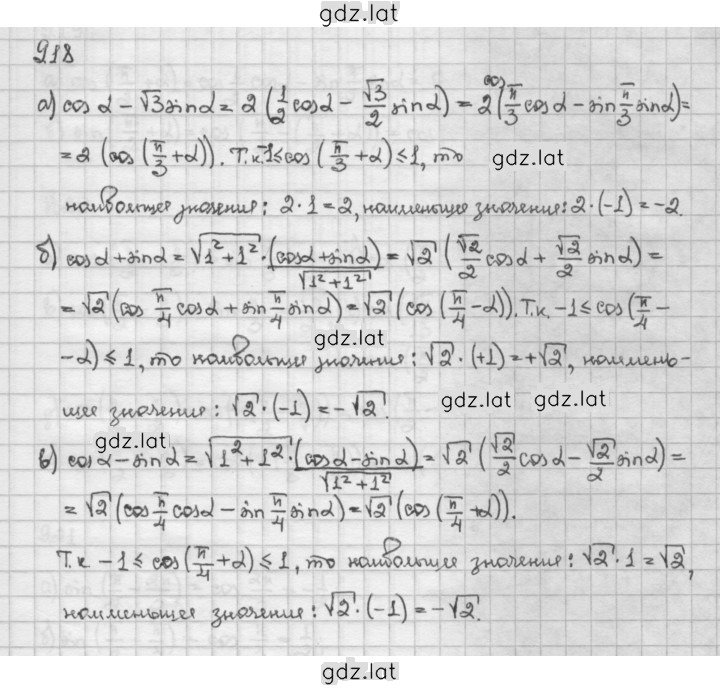 gdz.lat
918
а) cos α − √3 sin α = 2 (1/2 cos α − √3/2 sin α) = 2 (cos π/3 cos α − sin π/3 sin α) =
= 2 (cos (π/3 + α)). Т.к. −1 ≤ cos (π/3 + α) ≤ 1, то
gdz.lat
наибольшее значение: 2 · 1 = 2, наименьшее значение: 2 · (−1) = −2.
б) cos α + sin α = √(1² + 1²) · (cos α + sin α)/√(1² + 1²) = √2 (√2/2 cos α + √2/2 sin α) =
= √2 (cos π/4 cos α + sin π/4 sin α) = √2 (cos (π/4 − α)). Т.к. −1 ≤ cos (π/4 −
gdz.lat
− α) ≤ 1, то наибольшее значение: √2 · (+1) = +√2, наимень-
gdz.lat gdz.lat
шее значение: √2 · (−1) = −√2.
gdz.lat
в) cos α − sin α = √(1² + 1²) · (cos α − sin α)/√(1² + 1²) = √2 (√2/2 cos α − √2/2 sin α) =
= √2 (cos π/4 cos α − sin π/4 sin α) = √2 (cos (π/4 + α)).
Т.к −1 ≤ cos (π/4 + α) ≤ 1, то наибольшее значение: √2 · 1 = √2,
наименьшее значение: √2 · (−1) = −√2.
gdz.lat